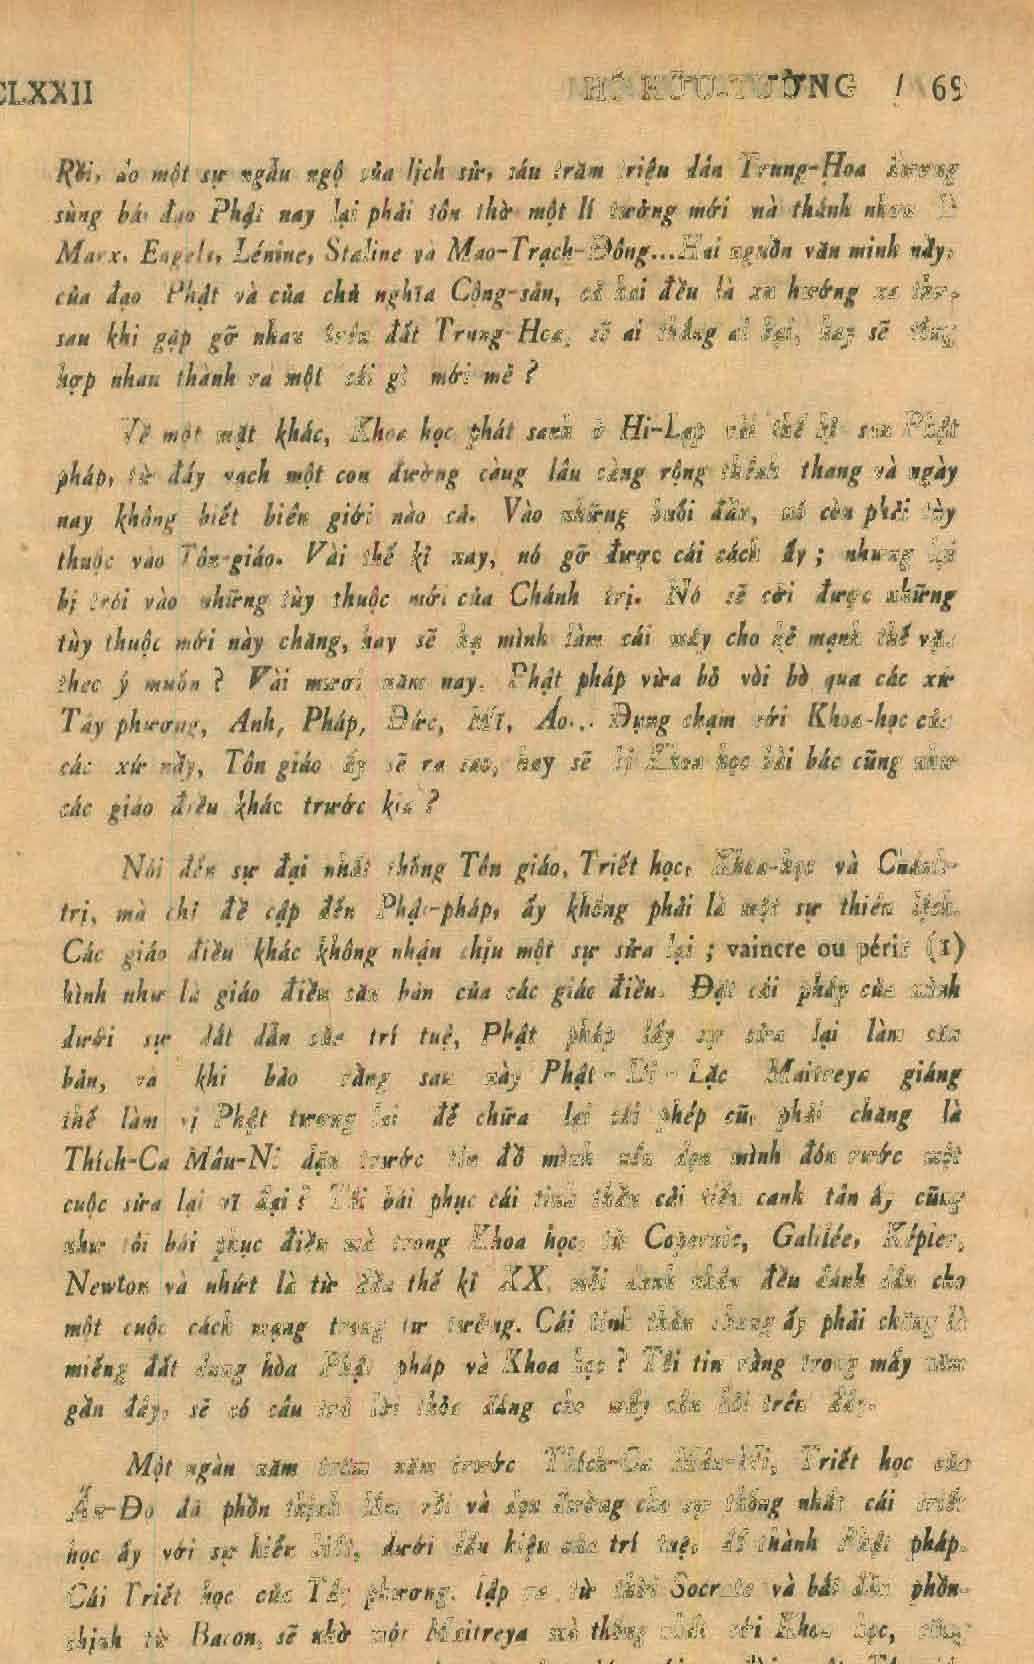 CLXXII HỒ HỮU-TƯỜNG / 69
Rồi, do một sự ngẫu ngộ của lịch sử, sáu trăm triệu dân Trung-Hoa đương
sùng bái đạo Phật nay lại phải tôn thờ một lí tưởng mới mà thánh nhơn là
Marx, Engels, Lénine, Staline và Mao-Trạch-Đông...Hai nguồn văn minh nầy,
của đạo Phật và của chủ nghĩa Cộng-sản, cả hai đều là xu hướng
sau khi gặp gỡ nhau trên đất Trung-Hoa, sẽ ai thắng ai bại, hay sẽ tổng
hợp nhau thành ra một cái gì mới mẻ ?
Về một mặt khác, Khoa học phát sanh ở Hi-Lạp vài thế kỉ sau Phật
pháp, từ đấy vạch một con đường càng lâu càng rộng thênh thang và ngày
nay không biết biên giới nào cả. Vào những buổi đầu, nó còn phải tùy
thuộc vào Tôn-giáo. Vài thế kỉ nay, nó gỡ được cái ách ấy ; nhưng lại
bị trói vào những tùy thuộc mới của Chánh trị. Nó sẽ cởi được những
tùy thuộc mới này chăng, hay sẽ hạ mình làm cái máy cho kẻ mạnh thế vặn
theo ý muốn ? Vài mươi năm nay, Phật pháp vừa bỏ vòi bò qua các xứ
Tây phương, Anh, Pháp, Đức, Mĩ, Áo... Đụng chạm với Khoa-học của
các xứ nầy, Tôn giáo ấy sẽ ra sao, hay sẽ bị Khoa học bài bác cũng như
các giáo điều khác trước kia ?
Nói đến sự đại nhất thống Tôn giáo, Triết học, Khoa-học và Chánh-
trị, mà chỉ đề cập đến Phật-pháp, ấy không phải là một sự thiên lệch.
Các giáo điều khác không nhận chịu một sự sửa lại ; vaincre ou périr (1)
hình như là giáo điều căn bản của các giáo điều. Đặt cái pháp của mình
dưới sự dắt dẫn của trí tuệ, Phật pháp lấy sự sửa lại làm căn
bản, và khi bảo rằng sau này Phật - Di - Lặc Maitreya giáng
thế làm vị Phật tương lai để chữa lại cái phép cũ, phải chăng là
Thích-Ca Mâu-Ni dặn trước tín đồ mình nên dọn mình đón rước một
cuộc sửa lại vĩ đại ? Tôi bái phục cái tinh thần cải tiến canh tân ấy cũng
như tôi bái phục điều mà trong Khoa học, từ Copernic, Galilée, Képler,
Newton và nhứt là từ đầu thế kỉ XX, mỗi danh nhân đều đánh dấu cho
một cuộc cách mạng trong tư tưởng. Cái tinh thần chung ấy phải chăng là
miếng đất dung hòa Phật pháp và Khoa học ? Tôi tin rằng trong mấy năm
gần đây, sẽ có câu trả lời thỏa đáng cho mấy câu hỏi trên đây.
Một ngàn năm trăm năm trước Thích-Ca Mâu-Ni, Triết học của
Ấn-Độ đã phồn thịnh lắm rồi và dọn đường cho sự thống nhất cái triết
học ấy với sự hiểu biết, dưới dấu hiệu của trí tuệ, để thành Phật pháp.
Cái Triết học của Tây phương, lập ra từ thời Socrate và bắt đầu phồn-
thịnh từ Bacon, sẽ nhờ một Maitreya mà thống nhất với Khoa học, cũng